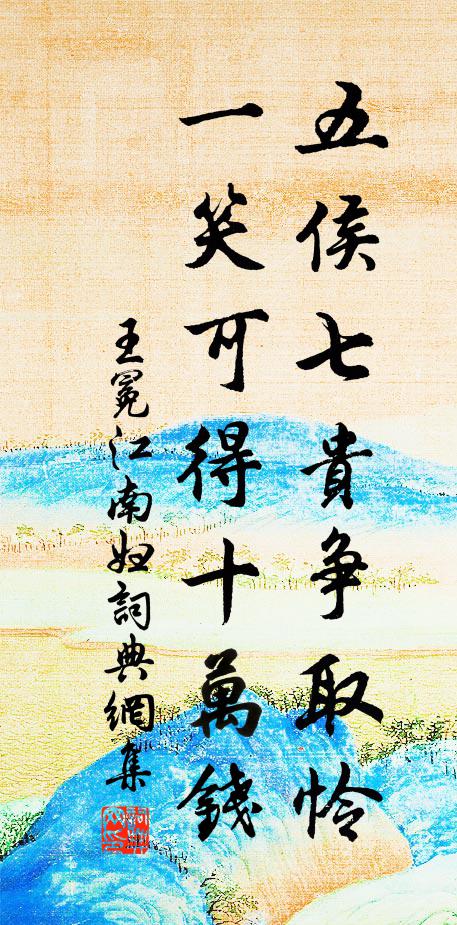 五侯七貴争取怜
一笑可得十萬錢
王冕江南妇詞典網集